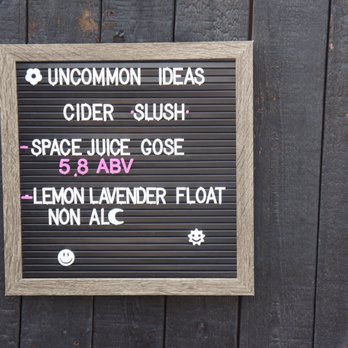 UNCOMMON IDEAS
CIDER SLUSH
-SPACE JUICE GOSE
5.8 ABV
-LEMON LAVENDER FLOAT
NON ALC